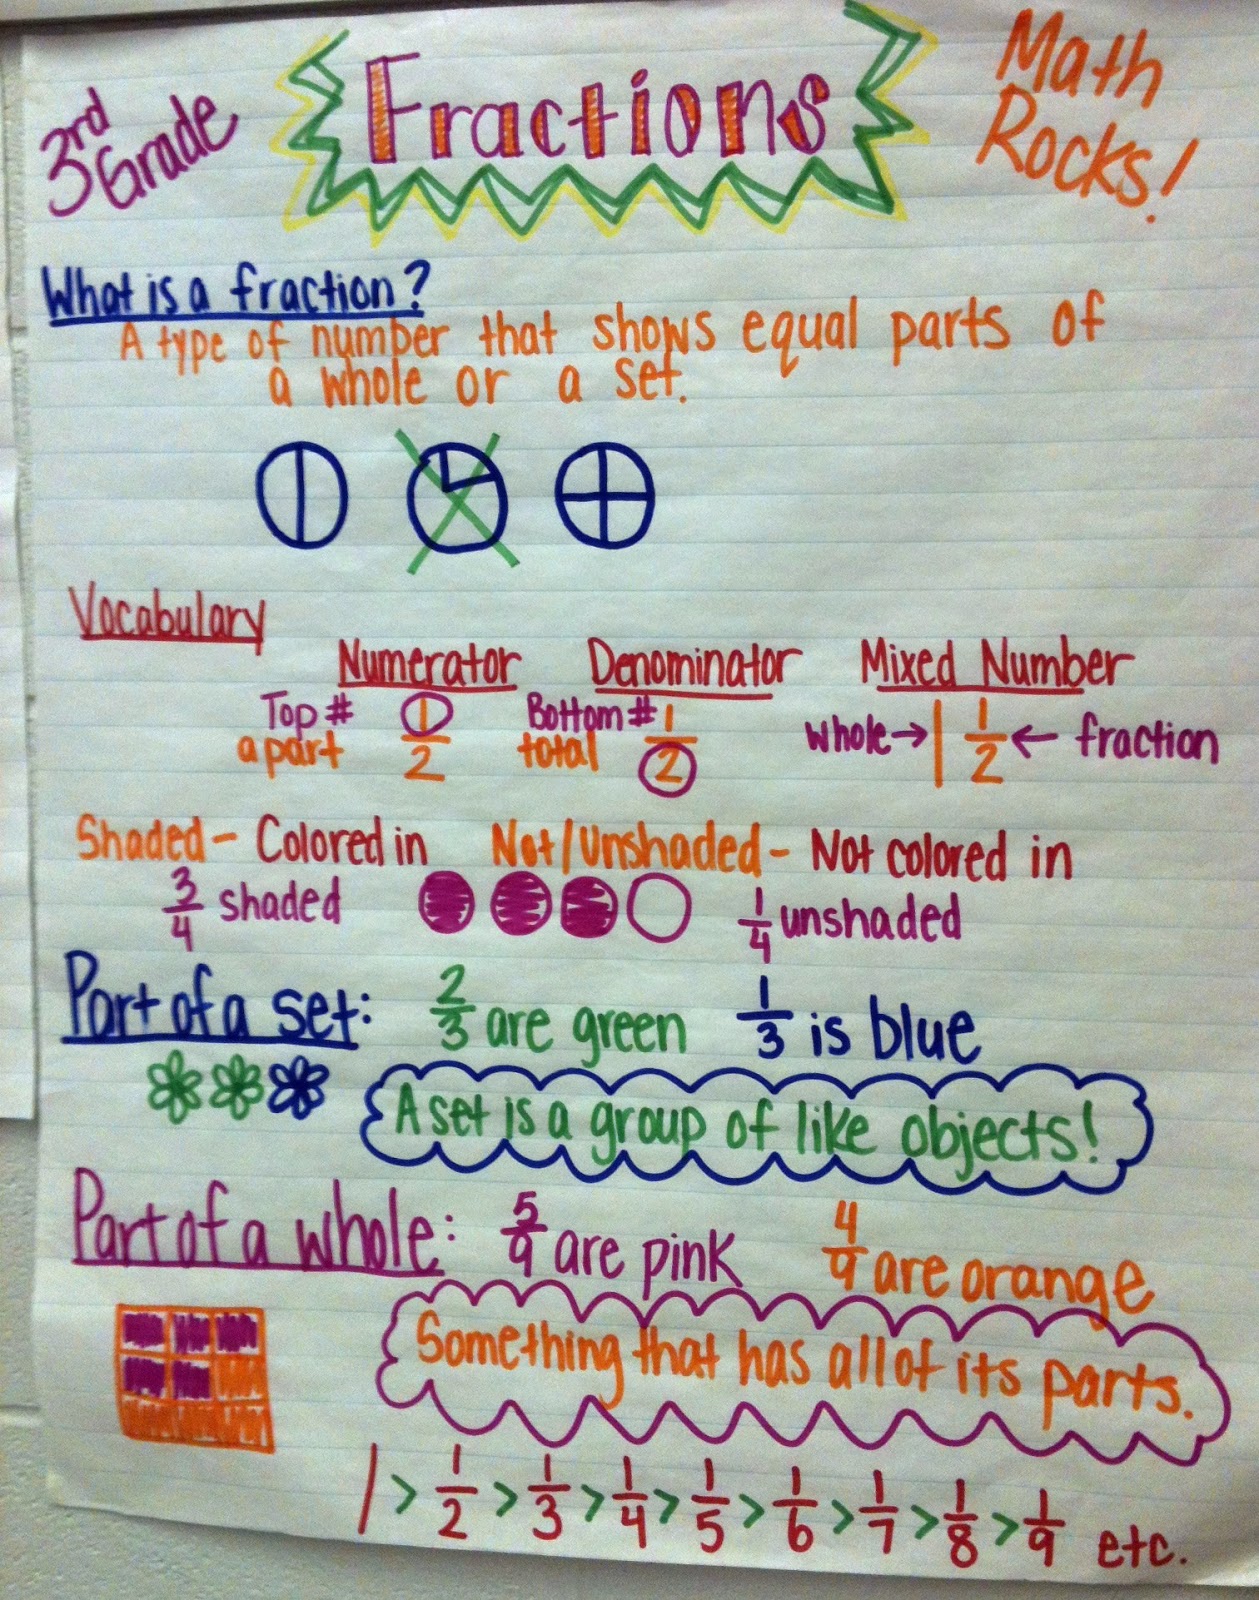 3rd Grade
Fractions
Math Rocks!
What is a fraction?
A type of number that shows equal parts of
a whole or a set.
Vocabulary
Numerator Denominator Mixed Number
Top # 1/2 Bottom # 1/2 whole → 1 1/2 ← fraction
a part total
Shaded - Colored in Not/Unshaded - Not colored in
3/4 shaded 1/4 unshaded
Part of a set: 2/3 are green 1/3 is blue
A set is a group of like objects!
Part of a whole: 5/9 are pink 4/9 are orange
Something that has all of its parts.
1 > 1/2 > 1/3 > 1/4 > 1/5 > 1/6 > 1/7 > 1/8 > 1/9 etc.